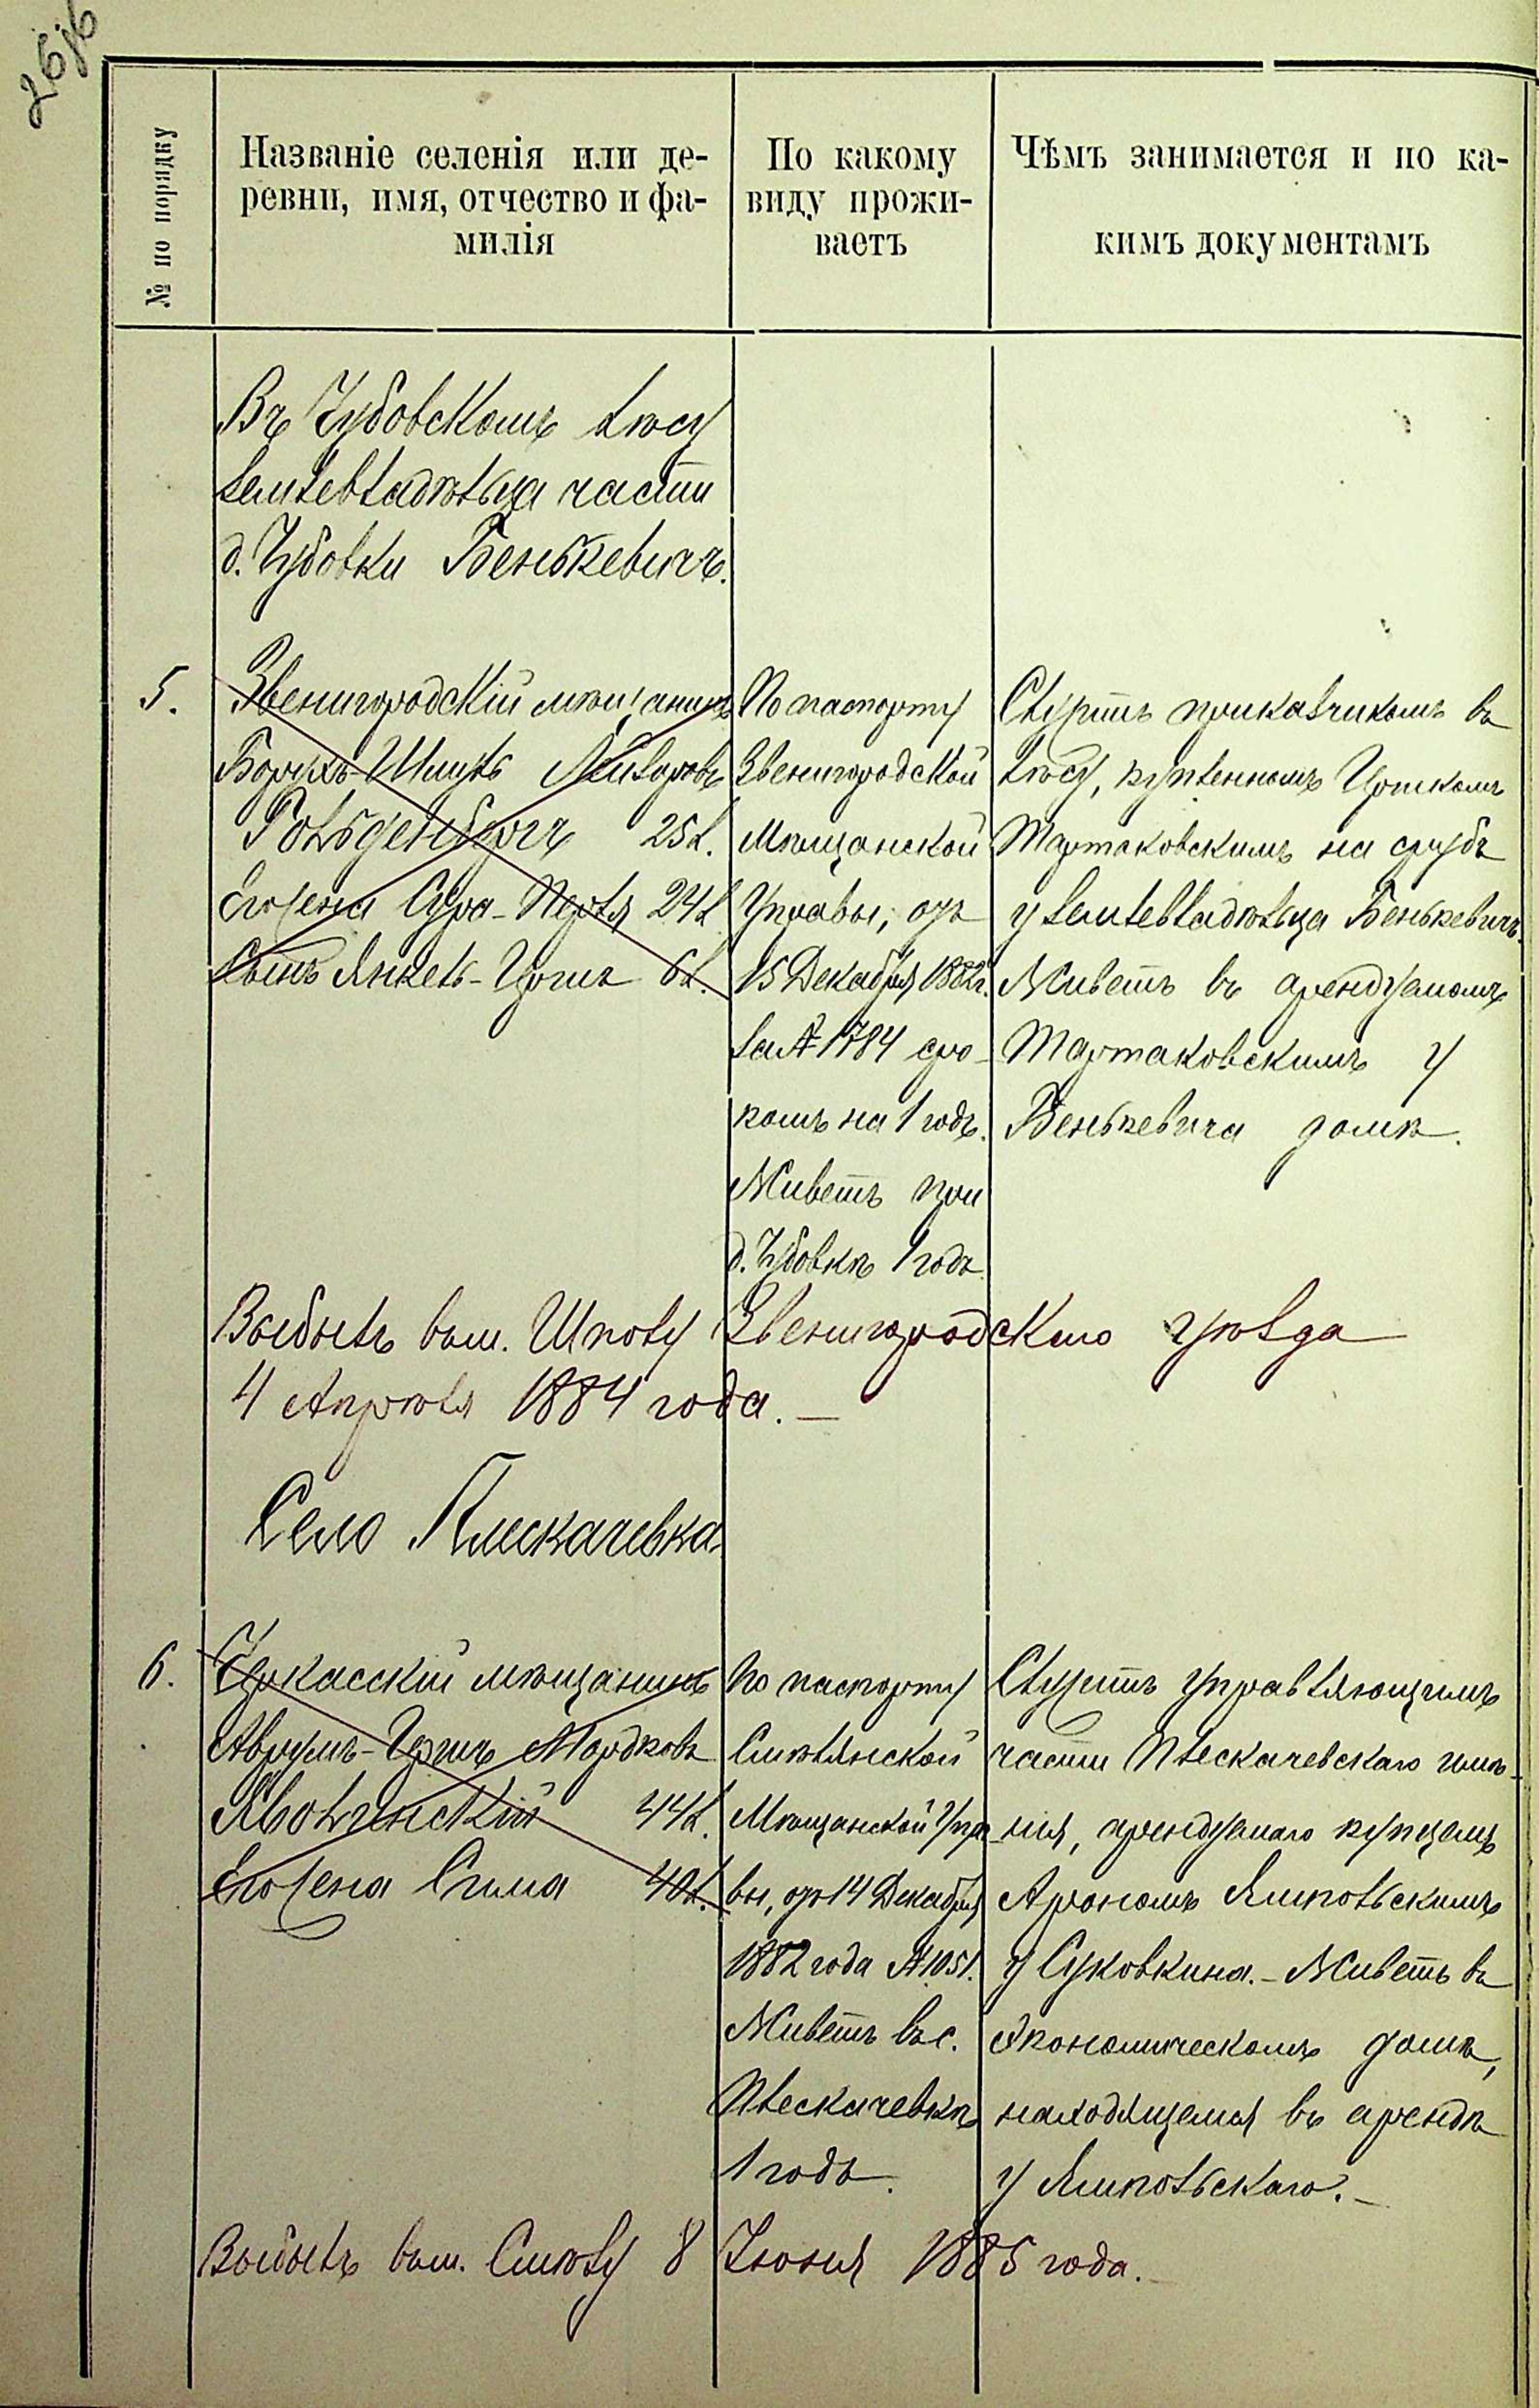 26/6
№ по порядку
Названіе селенія или де-
ревни, имя, отчество и фа-
милія
По какому
виду прожи-
ваетъ
Чѣмъ занимается и по ка-
кимъ документамъ
Въ Чубовскомъ лѣсу
землевладѣльца части
д. Чубовки Бенькевичъ.
5.
Звенигородскій мѣщанинъ
Борухъ-Шмулъ Лейзоровъ
Гольденбергъ 25 л.
Его жена Сура-Перля 24 л.
Сынъ Янкель-Гершъ 6 л.
По паспорту
Звенигородской
Мѣщанской
Управы, отъ
15 Декабря 1882 г.
за № 1784 сро-
комъ на 1 годъ.
Живетъ при
д. Чубовкѣ 1 годъ.
Служитъ приказчикомъ въ
лѣсу, купленномъ Гершкомъ
Тартаковскимъ на срубъ
у землевладѣльца Бенькевичъ.
Живетъ въ арендуемомъ
Тартаковскимъ у
Бенькевича домѣ.
Выбылъ въ м. Шполу Звенигородскаго уѣзда
4 Апрѣля 1884 года. —
Село Плескачевка
6.
Черкасскій мѣщанинъ
Аврумъ-Гершъ Мордковъ
Яволчинскій 44 л.
Его жена Сима 40 л.
По паспорту
Смѣлянской
Мѣщанской Упра-
вы, отъ 14 Декабря
1882 года № 1051.
Живетъ въ с.
Плескачевкѣ
1 годъ.
Служитъ управляющимъ
части Плескачевскаго имѣ-
нія, арендуемаго купцомъ
Арономъ Ямпольскимъ
у Суковкина. - Живетъ въ
экономическомъ домѣ,
находящемся въ арендѣ
у Ямпольскаго. -
Выбылъ въ м. Смѣлу 8 Іюня 1885 года. -